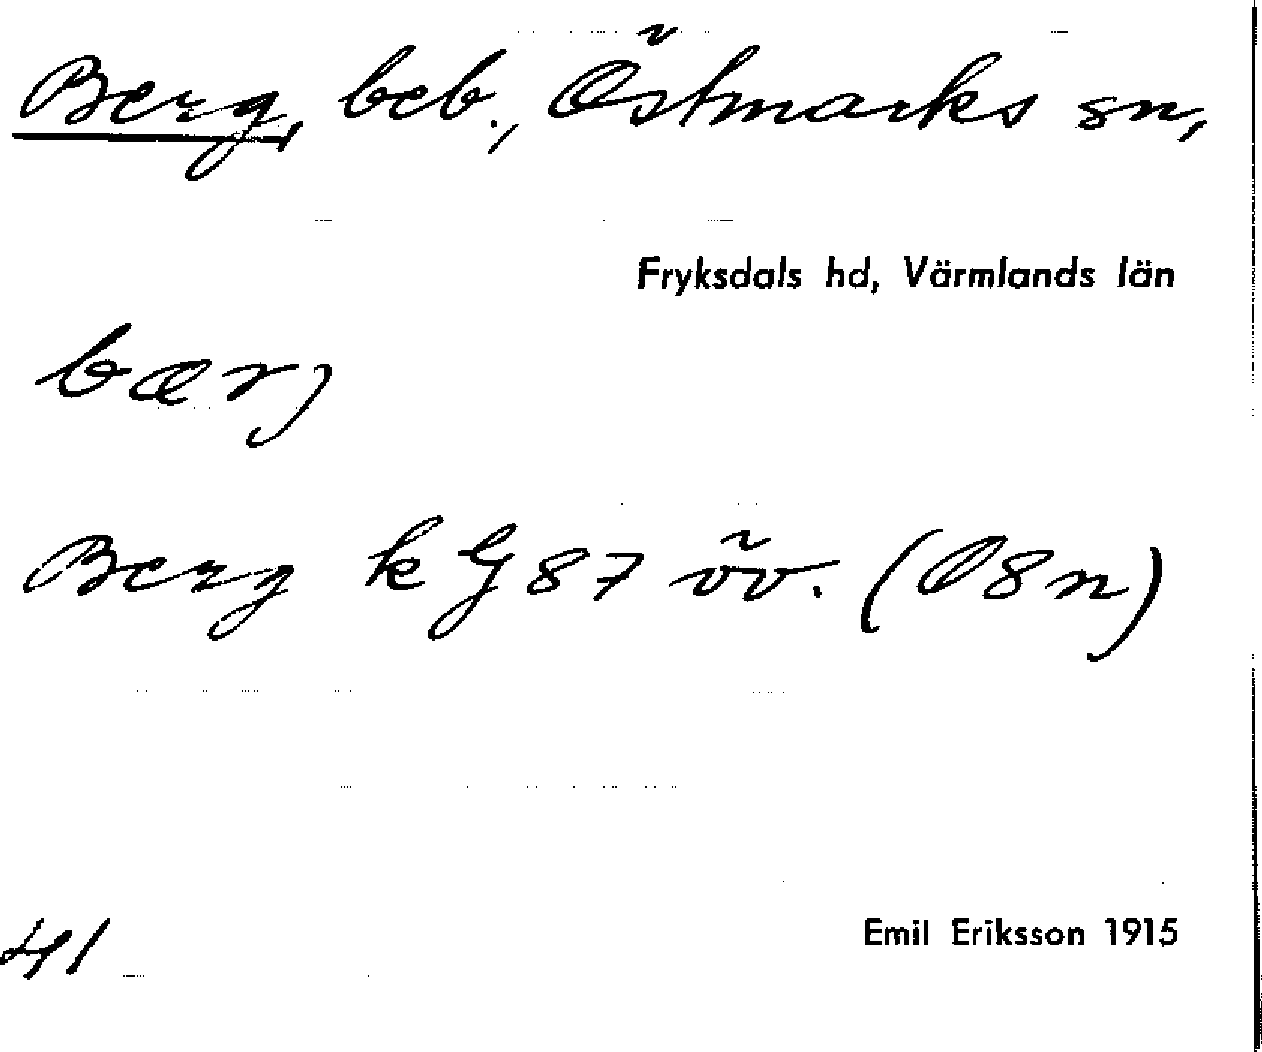 Berg, beb., Östmarks sn,
Fryksdals hd, Värmlands län
bærj
Berg k G 87 öv. (O8n)
41
Emil Eriksson 1915